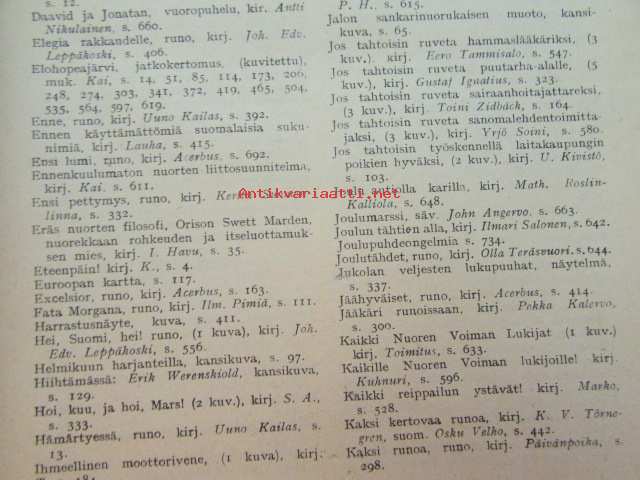 s. 12.
Daavid ja Jonatan, vuoropuhelu, kir. Antti
Nikulainen, s. 660.
Elegia rakkaudelle, runo, kirj. Joh. Edv.
Leppäkoski, s. 406.
Elohopeajärvi, jatkokertomus, (kuvitettu),
muk. Kai, s. 14, 51, 85, 114, 173, 206,
248, 274, 303, 341, 372, 419, 465, 504,
535, 564, 597, 619.
Enne, runo, kirj. Uuno Kailas, s. 392.
Ennen käyttämättömiä suomalaisia suku-
nimiä, kirj. Lauha, s. 415.
Ensi lumi, runo, kirj. Acerbus. s. 692.
Ennenkuulumaton nuorten liittosuunnitelma,
kirj. Kai. s. 611.
Ensi pettymys, runo, kirj.
linna, s. 332.
Eräs nuorten filosofi, Orison Swett Marden,
nuorekkaan rohkeuden ja itseluottamuk-
sen mies, kirj. I. Havu, s. 35.
Eteenpäin! kirj. K., s. 4.
Euroopan kartta, s. 117.
Excelsior, runo, kirj. Acerbus, s. 163.
Fata Morgana, runo, kirj. Ilm. Pimiä, s. 111.
Harrastusnäyte, kuva, s. 411.
Hei, Suomi, hei! runo, (1 kuva), kirj. Joh.
Edv. Leppäkoski, s. 556.
Helmikuun harjanteilla, kansikuva, s. 97.
Hiihtämässä: Erik Werenskiold, kansikuva,
s. 129.
Hoi, kuu, ja hoi, Mars! (2 kuv.), kirj. S. A.,
s. 333.
Hämärtyessä, runo, kirj. Uuno Kailas, s.
13.
Ihmeellinen moottorivene, (1 kuva), kirj.
P. H., s. 615.
Jalon sankarinuorukaisen muoto, kansi-
kuva, s. 65.
Jos tahtoisin ruveta hammaslääkäriksi, (3
kuv.). kirj. Eero Tammisalo, s. 547.
Jos tahtoisin ruveta puutarha-alalle, (5
kuv.), kirj. Gustaf Ignatius, s. 323.
Jos tahtoisin ruveta sairaanhoitajattareksi,
(3 kuv.), kirj. Toini Zidbäck, s. 164.
Jos tahtoisin ruveta sanomalehdentoimitta-
jaksi, (3 kuv.), kirj. Yrjö Soini, s. 580.
Jos tahtoisin työskennellä laitakaupungin
poikien hyväksi, (2 kuv.), kirj. U. Kivistö,
s. 103.
autiolla karilla, kirj. Math. Roslin-
Kalliola, s. 648.
Joulumarssi, säv. John Angervo. s. 663.
Joulun tähtien alla, kirj. Ilmari Salonen, s. 642.
Joulupuhdeongelmia s. 734.
Joulutähdet, runo, kirj. Olla Teräsvuori. s. 644.
Jukolan veljesten lukupuuhat, näytelmä,
s. 337.
Jäähyväiset, runo, kirj. Acerbus, s. 414.
Jääkäri runoissaan, kirj. Pekka Kalervo,
s. 300.
Kaikki Nuoren Voiman Lukijat (1 kuv.)
kirj. Toimitus, s. 633.
Kaikille Nuoren Voiman lukijoille! kirj
Kuhnuri, s. 596.
Kaikki reippailun ystävät! kirj. Marko,
s. 528.
Kaksi kertovaa runoa, kirj. K. V. Törne-
gren, suom. Osku Velho, s. 442.
Kaksi runoa, runo, kirj. Päivänpoika, s.
298.
Antikvariaatti.net